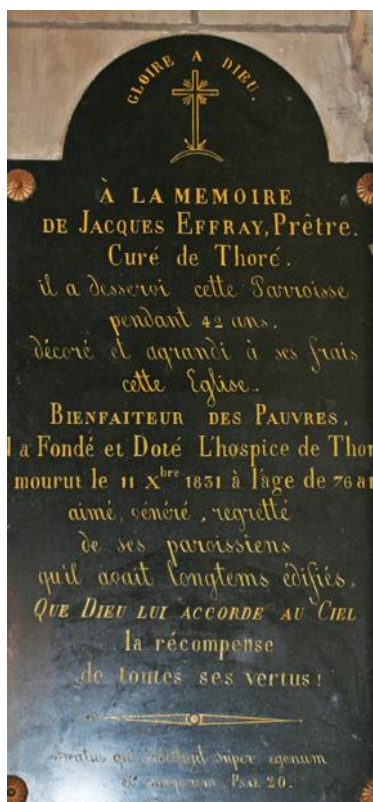 GLOIRE A DIEU.
À LA MEMOIRE
DE JACQUES EFFRAY, Prêtre.
Curé de Thoré.
il a desservi cette Parroisse
pendant 42 ans,
décoré et agrandi à ses frais
cette Eglise.
BIENFAITEUR DES PAUVRES,
l a Fondé et Doté L'hospice de Thor
mourut le 11 Xbre 1831 à l'âge de 76 a
aimé, vénéré, regretté
de ses paroissiens
qu'il avait longtems édifiés.
QUE DIEU LUI ACCORDE AU CIEL
la récompense
de toutes ses vertus!
Beatus qui intelligit super egenum
et pauperem. PSAL 20.